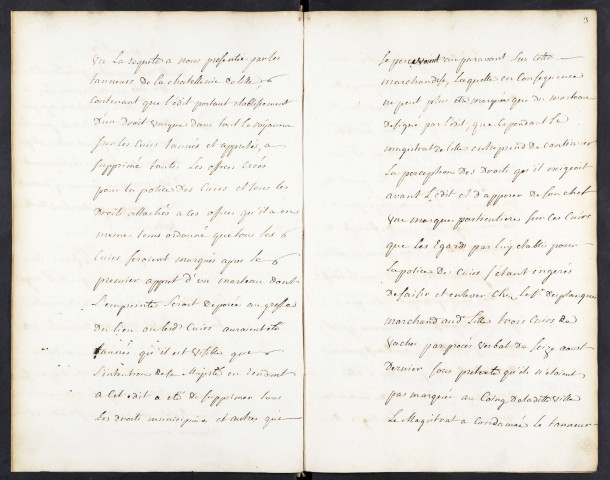 Vu la requete a nous presentée par les
tanneurs de la chatellenie de lille,
Contenant que l'édit portant établissement
D'un droit unique dans tout le royaume
sur les Cuirs tannés et apprêtés, a
supprimé toutes les offices Créés
pour la police des Cuirs et tous les
Droits attachés a ces offices qu'il a en
meme tems ordonné que tous les
Cuirs seroient marqués apres le
premier apprêt d'un marteau dont
l'empreinte seroit deposée au greffe
du lieu ou lesd. Cuirs auroient été
tannés qu'il est visible que
l'intention de sa Majesté en rendant
a Cet edit a été de supprimer tous
les droits municipaux et autres que
3
se percevoient auparavant sur cette
marchandise, laquelle en Consequence
ne peut plus etre marquée que du marteau
designé par l'édit, que Cependant le
magistrat de lille entreprend de continuer
la perception des Droits qu'il exigeoit
avant l'Edit et d'apposer de son chef
une marque particuliere sur ces Cuirs
que les Egards par luy etablis pour
la police des Cuirs s'étant ingerés
de saisir et enlever chez le Sr. Desplanques
marchand aud. Lille trois Cuirs de
Vaches par procès verbal du seize aoust
Dernier sous pretexte qu'ils n'étoient
pas marqués au Coing de ladite Ville
Le Magistrat a Condamné le tanneur